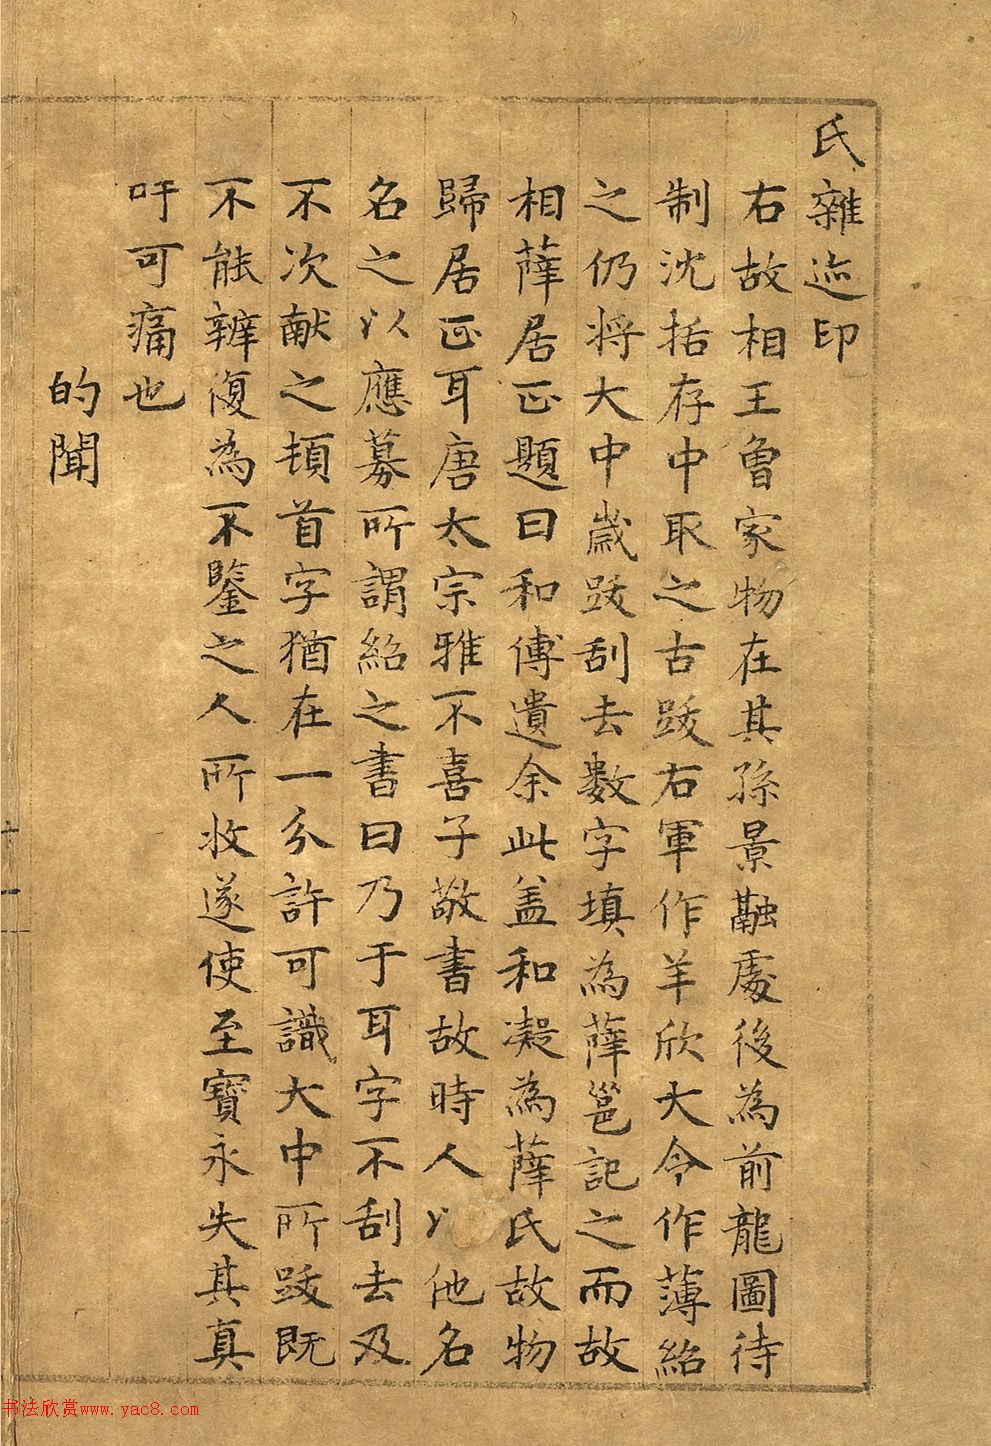 氏雜迹印
右故相王曾家物在其孫景融處後為前龍圖待
制沈括存中取之古跋右軍作羊欣大令作薄紹
之仍将大中歲跋刮去數字填為薛邕記之而故
相薛居正題曰和傅遺余此盖和凝為薛氏故物
歸居正耳唐太宗雅不喜子敬書故時人以他名
名之以應募所謂紹之書曰乃于耳字不刮去及
不次献之頓首字猶在一分許可識大中所跋既
不能辨復為不鑒之人所收遂使至寶永失其真
吁可痛也
的聞
十一
书法欣赏www.yac8.com